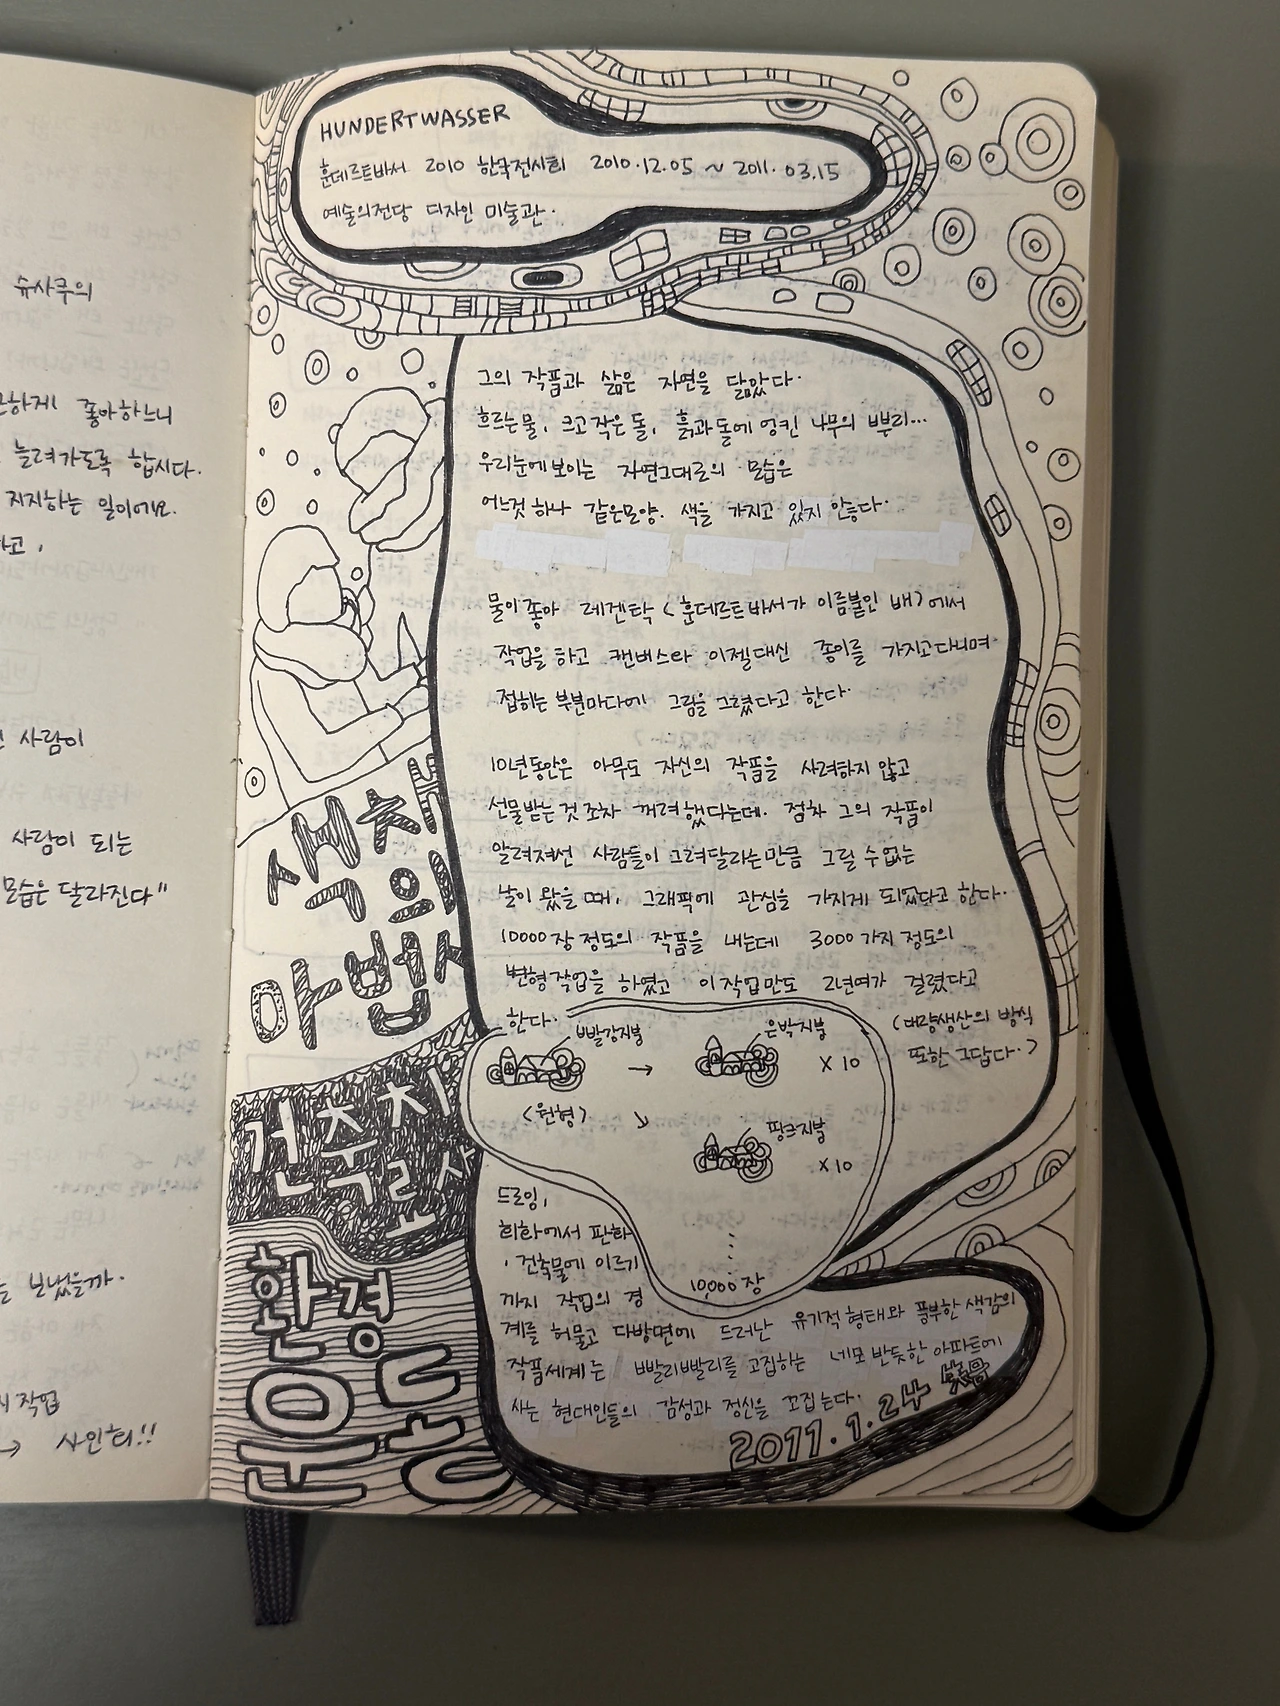 슈사쿠의
하게 좋아하느니
늘려가도록 합시다.
지지하는 일이에요.
하고,
사람이
사람이 되는
모습은 달라진다"
보냈을까.
작업
→ 사인회!!
HUNDERTWASSER
훈데르트바서 2010 한국전시회 2010.12.05 ~ 2011.03.15
예술의전당 디자인 미술관.
그의 작품과 삶은 자연을 닮았다.
흐르는 물, 크고 작은 돌, 흙과 돌에 엉킨 나무의 뿌리...
우리눈에 보이는 자연그대로의 모습은
어느것 하나 같은모양. 색을 가지고 있지 않다.
물이 좋아 레겐탁 <훈데르트바서가 이름붙인 배>에서
작업을 하고 캔버스와 이젤대신 종이를 가지고다니며
접히는 부분마다에 그림을 그렸다고 한다.
10년동안은 아무도 자신의 작품을 사려하지 않고
선물받는 것 조차 꺼려했다는데. 점차 그의 작품이
알려져선 사람들이 그려달라는만큼 그릴 수 없는
날이 왔을 때, 그래픽에 관심을 가지게 되었다고 한다.
10000장 정도의 작품을 내는데 3000가지 정도의
변형작업을 하였고 이 작업만도 2년여가 걸렸다고
한다.
(대량생산의 방식
또한 그답다.)
빨강지붕
→
은박지붕
x 10
<원형>
↘
핑크지붕
x 10
10,000장
드로잉,
회화에서 판화
, 건축물에 이르기
까지 작업의 경
계를 허물고 다방면에 드러난 유기적 형태와 풍부한 색감의
작품세계는 빨리빨리를 고집하는 네모 반듯한 아파트에
사는 현대인들의 감성과 정신을 꼬집는다.
2011.1.24
색채
의
마법사
건축치
료사
환경
운동